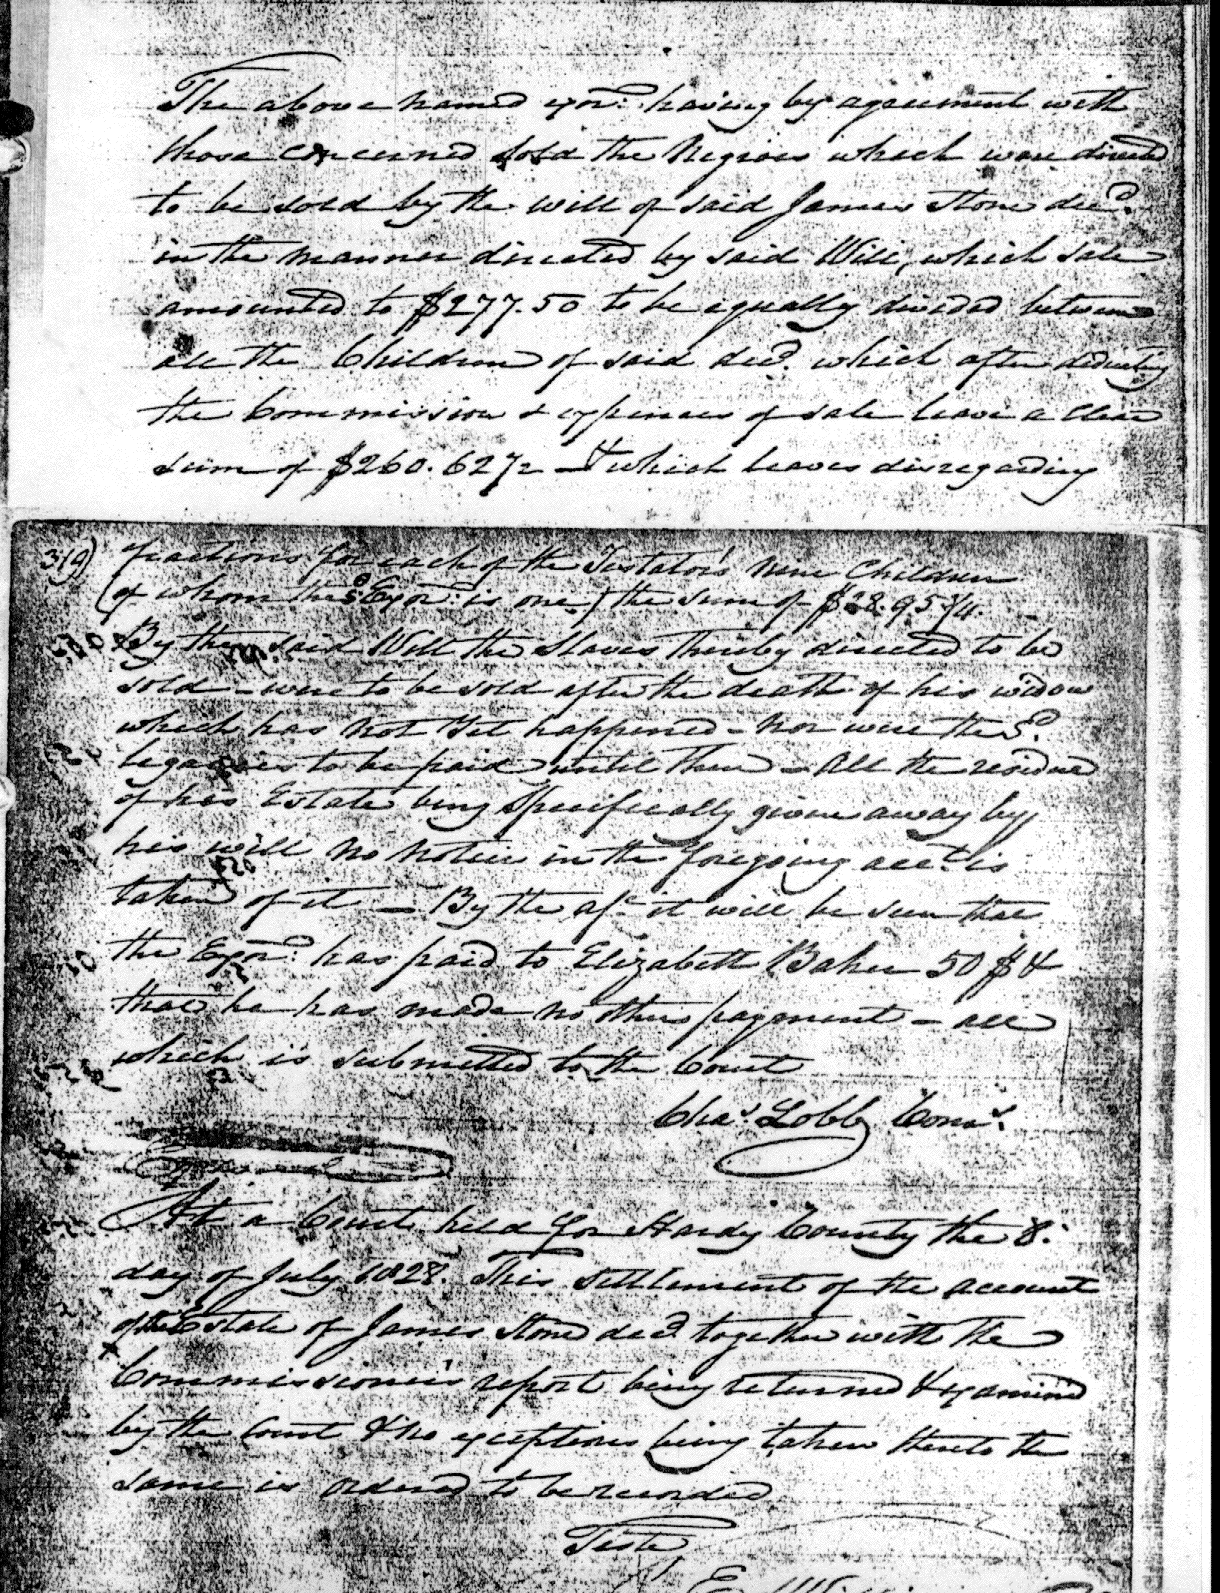 The above named exor. having by agreement with
those concerned sold the Negroes which were directed
to be sold by the will of said James Stone decd.
in the manner directed by said Will, which sale
amounted to $277.50 to be equally divided between
all the Children of said decd. which after deducting
the Commission & expences of sale leave a clear
sum of $260.62½ — & which leaves disregarding
319) fractions for each of the Testator's nine Children
(of whom the sd. Exor. is one) the sum of $28.95¾.
By the said Will the Slaves thereby directed to be
sold - were to be sold after the death of his widow
which has not yet happened - nor were the sd.
legacies to be paid until then - All the residue
of his Estate being specifically given away by
his will no notice in the foregoing acct. is
taken of it — By the a/c it will be seen that
the Exor. has paid to Elizabeth Baker 50 $ &
that he has made no other payment - all
which is submitted to the Court
Chas. Lobb Comr.
At a Court held for Hardy County the 8.
day of July 1828. This settlement of the account
of the Estate of James Stone decd. together with the
Commissioner's report being returned & examined
by the Court & no exceptions being taken thereto the
same is ordered to be recorded
Teste